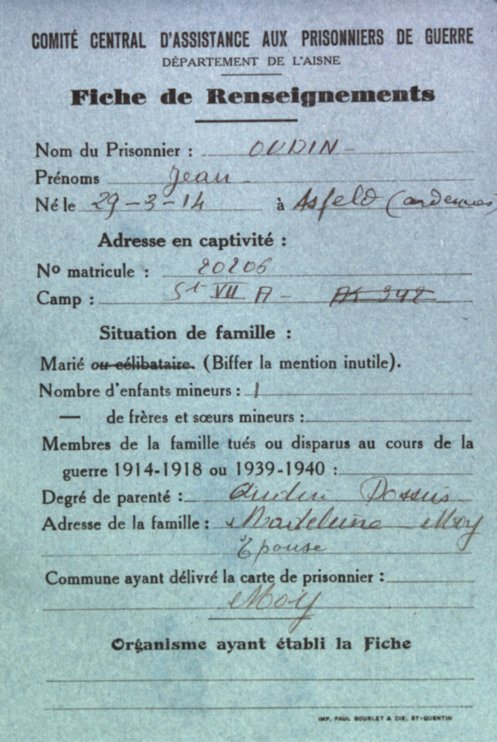 COMITÉ CENTRAL D'ASSISTANCE AUX PRISONNIERS DE GUERRE
DÉPARTEMENT DE L'AISNE
Fiche de Renseignements
Nom du Prisonnier : OUDIN
Prénoms Jean
Né le 29-3-14 à Asfeld (ardennes)
Adresse en captivité :
No matricule : 20206
Camp : St VII A - AK 342
Situation de famille :
Marié ou célibataire. (Biffer la mention inutile).
Nombre d'enfants mineurs : 1
— de frères et sœurs mineurs :
Membres de la famille tués ou disparus au cours de la
guerre 1914-1918 ou 1939-1940 :
Degré de parenté : Oudin Dossus
Adresse de la famille : Madeleine Moy
Epouse
Commune ayant délivré la carte de prisonnier :
Moy
Organisme ayant établi la Fiche
IMP. PAUL BOURLET & CIE, ST-QUENTIN